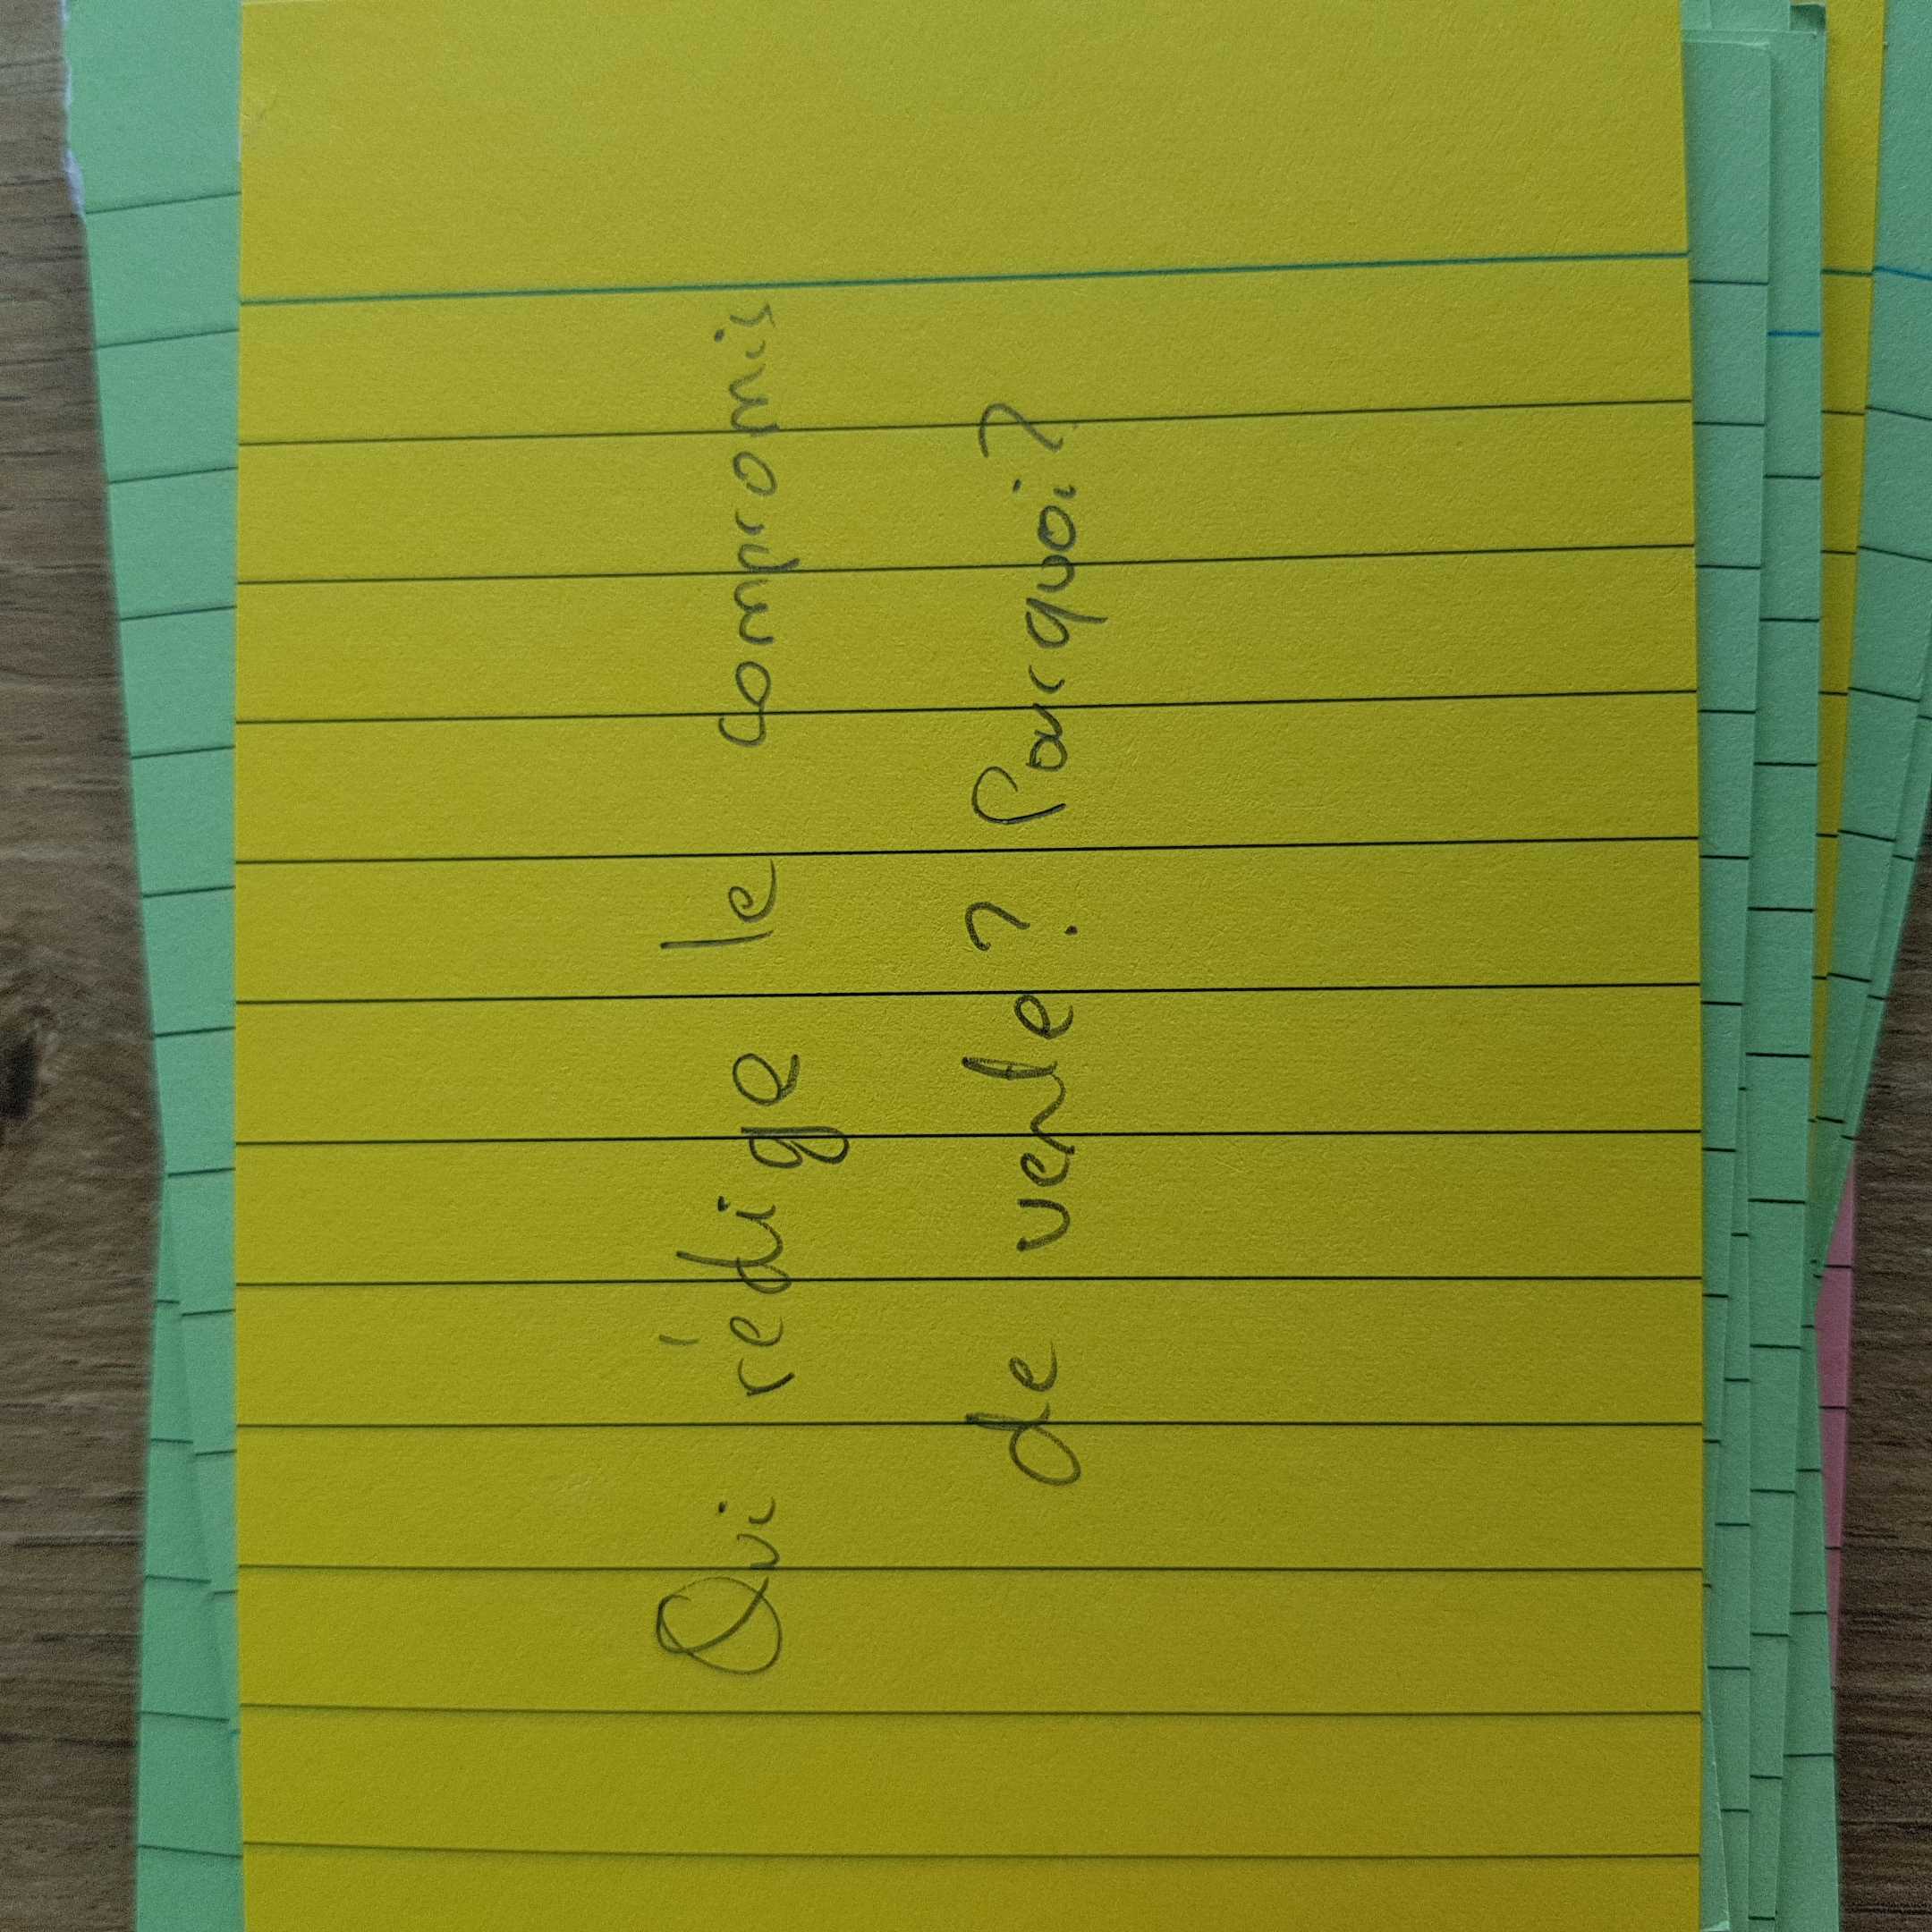 Qui rédige le compromis
de vente? Pourquoi?